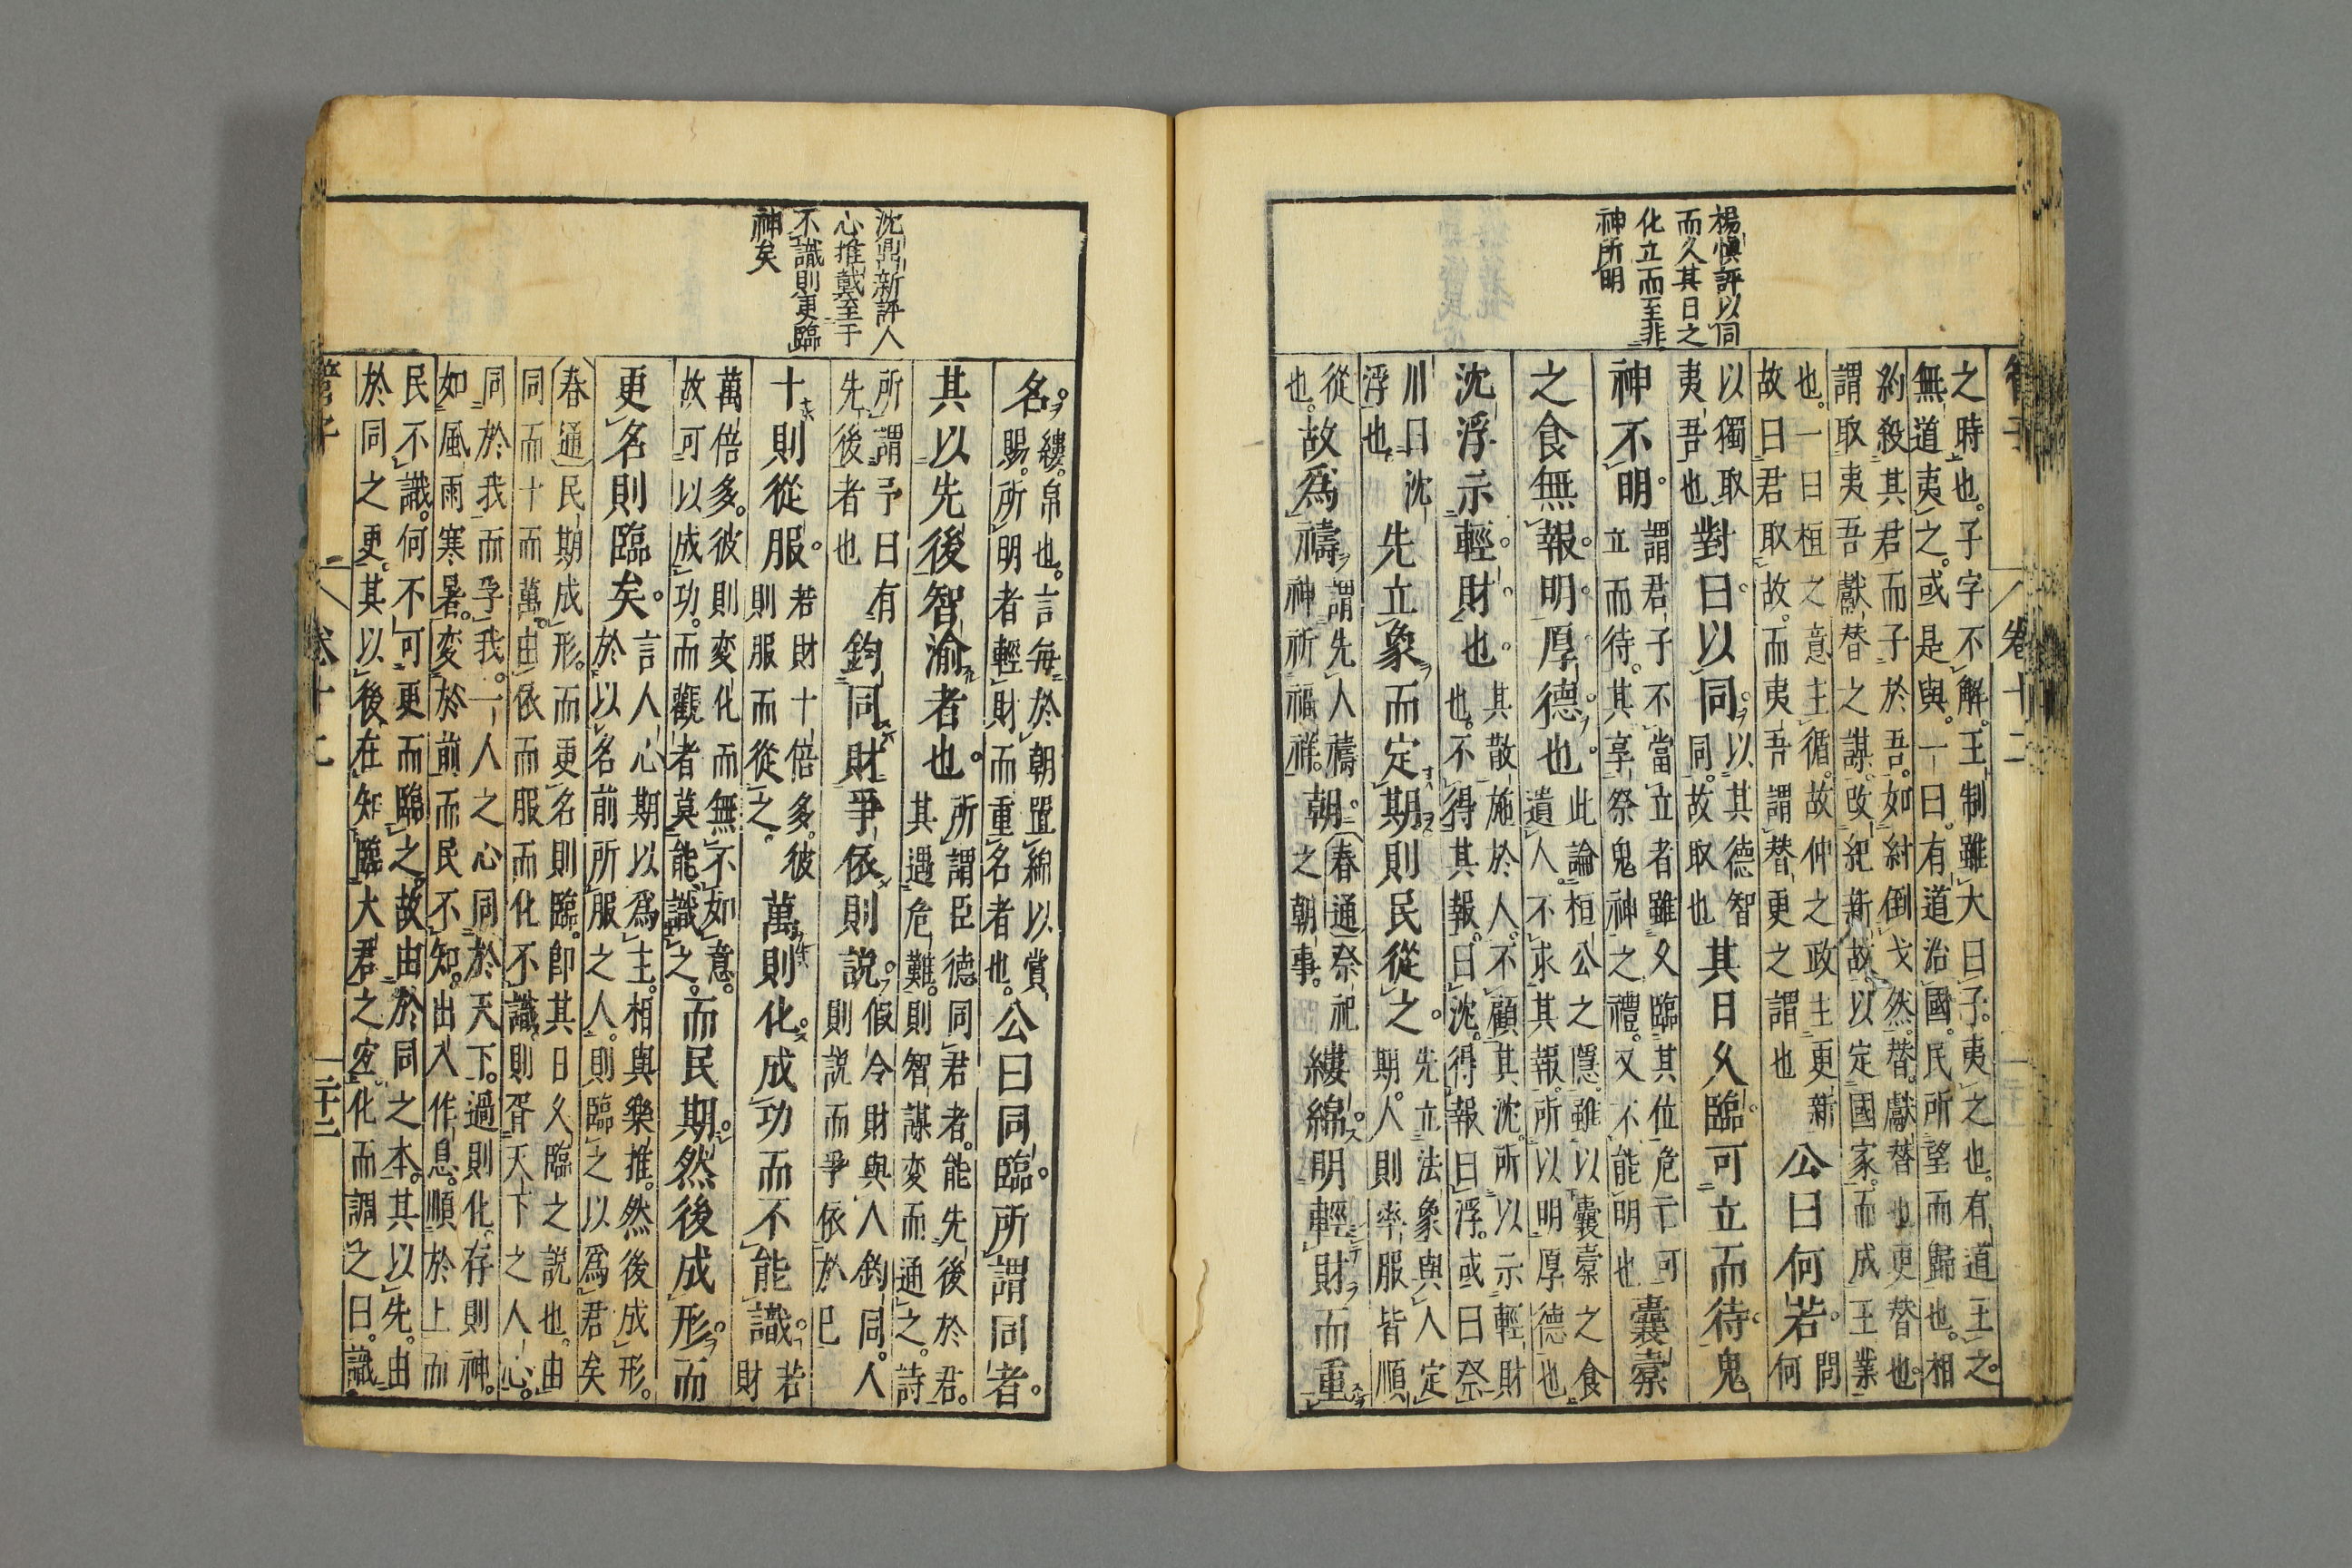 楊慎評以同
而久其日之
化立而至非
神所明
管子
卷十二
之時也。子字不解。王制雖大曰子。夷之也。有道王之。
無道夷之。或是與。一曰。有道治國。民所望而歸也。相
約殺其君而子於吾。如紂倒戈然。替。獻替也更替也。
謂取夷吾獻替之謀。改紀新故。以定國家。而成王業
也。一曰桓之意主循。故仲之政主更新
故曰君取故。而夷吾謂替更之謂也
公曰何若。
問
何
以獨取
夷吾也
對曰。以同。
以其德智
同。故取也
其日久臨可立而待鬼
神不明。
謂君子不當立者雖久臨其位危亡可
立而待。其享祭鬼神之禮。又不能明也
囊橐
之食無報。明厚德也。
此論桓公之隱。雖以囊橐之食
遺人。不求其報。所以明厚德也。
沈浮示輕財也。
其散施於人。不顧其沈。所以示輕財
也。不得其報。曰沈。得報曰浮。或曰祭
川曰沈
浮也
先立象而定期則民從之。
先立法象與人定
期。人則率服皆順
從
也。
故爲禱
謂先人禱
神祈福祥。
朝
春通祭祀
之朝事。
縷綿明輕財而重
沈鼎新評人
心推戴至于
不識則更臨
神矣
名。
縷。帛也。言每於朝置綿以賞
賜。所明者輕財而重名者也。
公曰同臨。所謂同者。
其以先後智渝者也。
所謂臣德同君者。能先後於君。
其遇危難。則智謀変而通之。詩
所謂予曰有
先後者也
鈞同財爭依則說。
假令財與人鈞同。人
則説而爭依於己
十則從服。
若財十倍多。彼
則服而從之。
萬則化。成功而不能識。
若
財
萬倍多。彼則変化而無不如意。
故可以成功。而觀者莫能識之。
而民期。然後成形。而
更名則臨矣。
言人心期以爲主。相與樂推。然後成形。
於以名前所服之人。則臨之以爲君矣
春通民期成形。而更名則臨。即其日久臨之説也。由
同而十而萬。由依而服而化不識。則胥天下之人心。
同於我而孚我。一人之心同於天下。過則化。存則神。
如風雨寒暑。変於前而民不知。出入作息。順於上而
民不識。何不可更而臨之。故由於同之本。其以先。由
於同之更。其以後。在知臨大君之宜。化而謂之曰。識
管子
卷十二
二十三